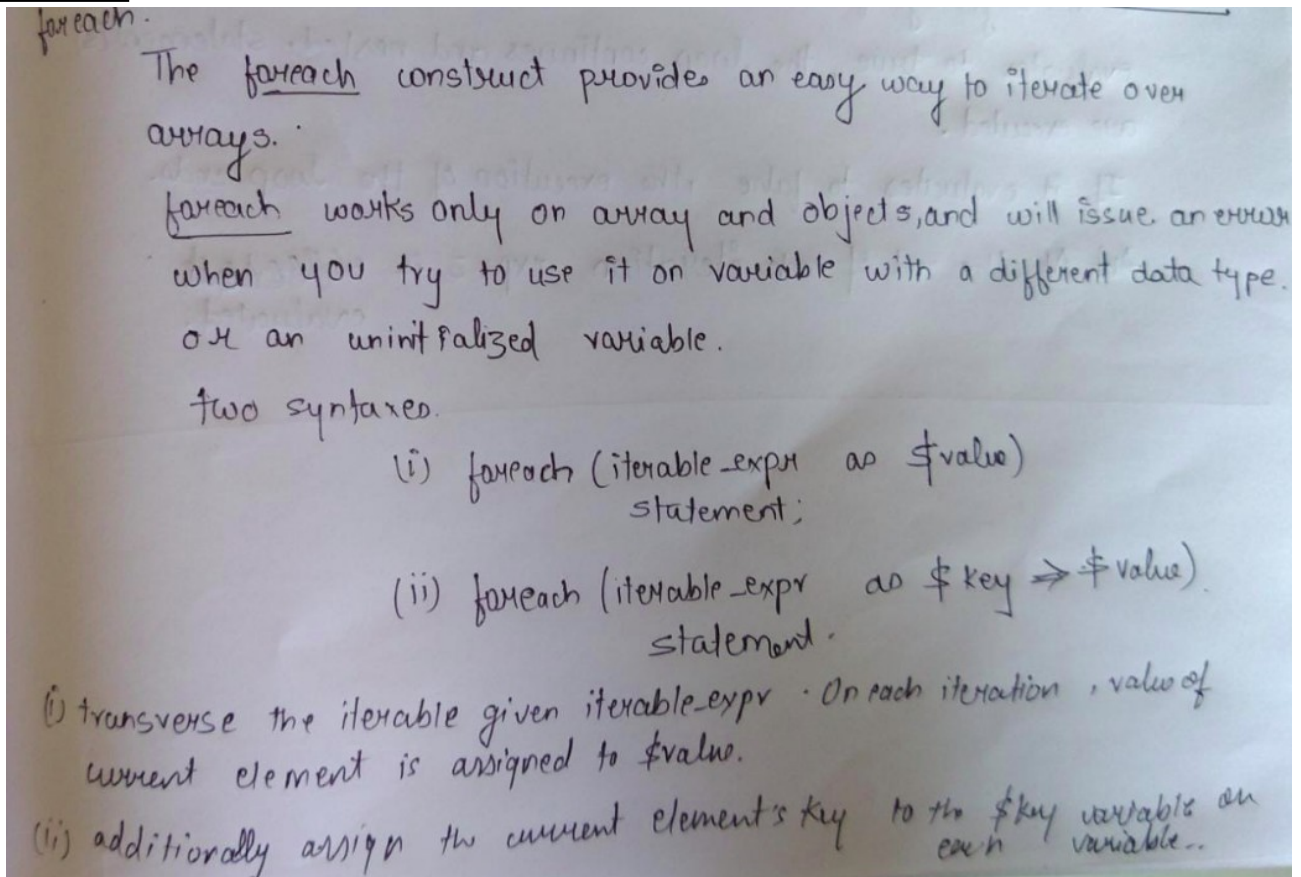 foreach.
The foreach construct provides an easy way to iterate over
arrays.
foreach works only on array and objects, and will issue an error
when you try to use it on variable with a different data type.
or an uninitialized variable.
two syntaxes.
(i) foreach (iterable_expr as $value)
statement;
(ii) foreach (iterable_expr as $key => $value)
statement.
(i) transverse the iterable given iterable_expr. On each iteration, value of
current element is assigned to $value.
(ii) additionally assign the current element's key to the $key variable on
each variable..